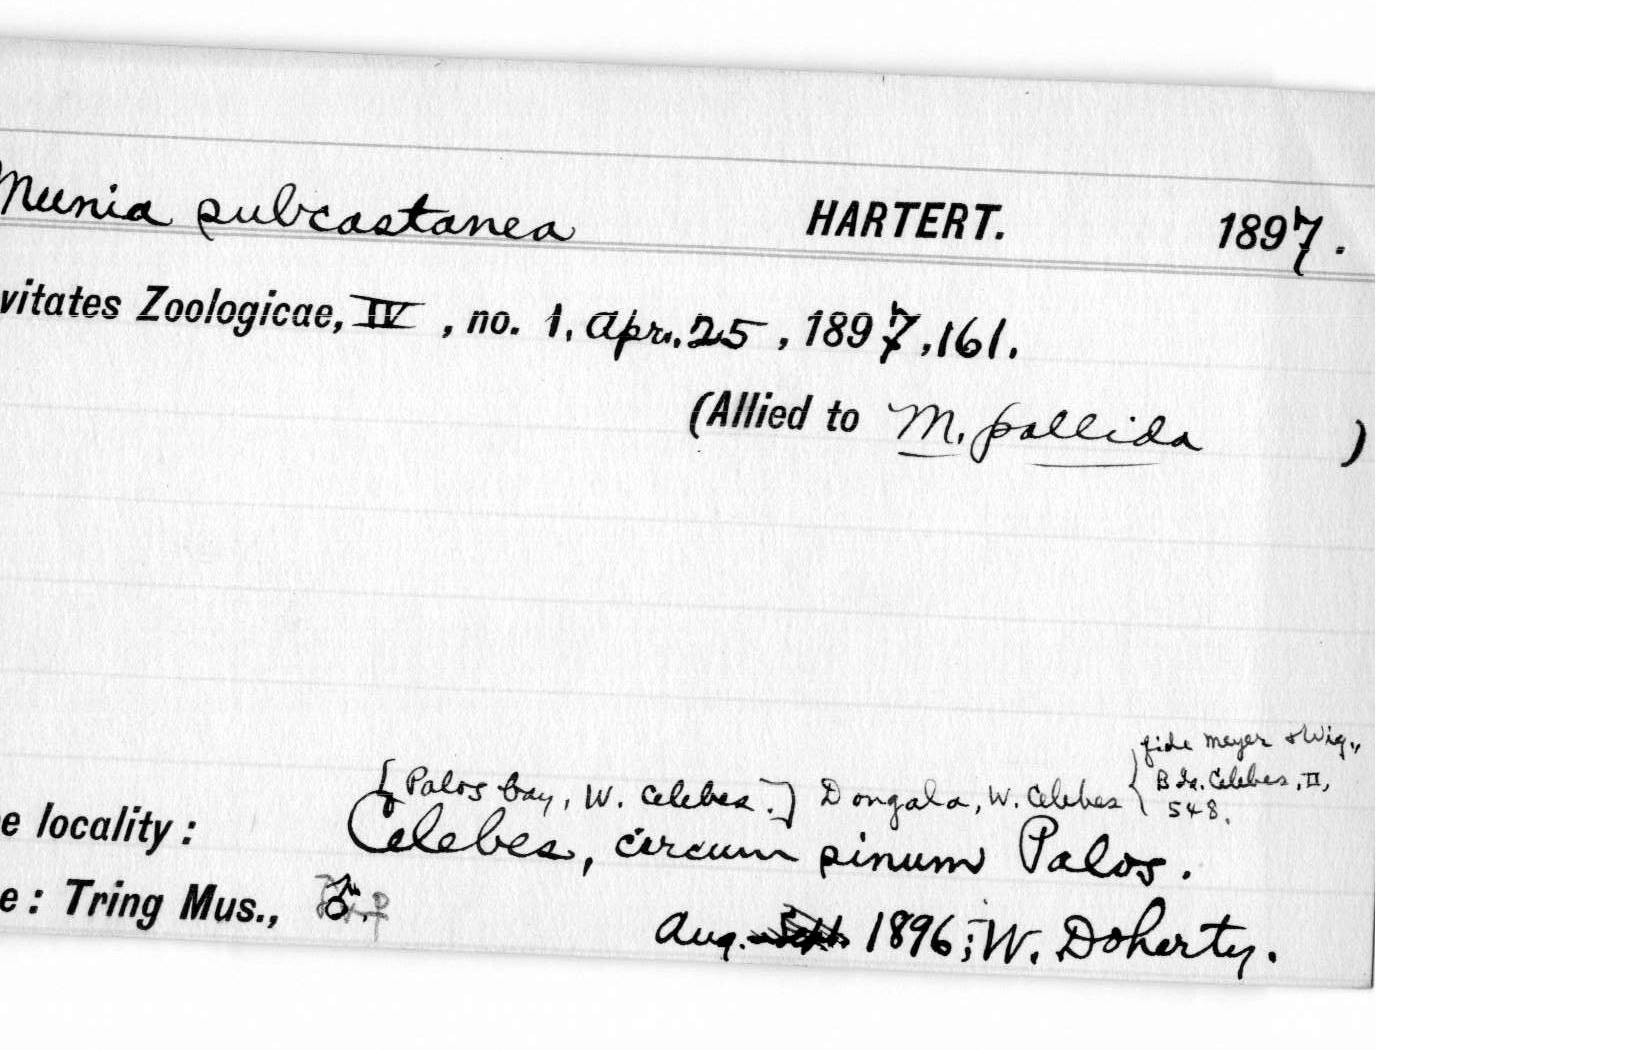 Munia subcastanea HARTERT. 1897.
vitates Zoologicae, IV, no. 1, Apr. 25, 1897, 161.
(Allied to M. pallida )
fide Meyer & Wig.,
[Palos bay, W. Celebes.] Dongala, W. Celebes { Bds. Celebes, II,
548.
e locality: Celebes, circum sinum Palos.
e: Tring Mus., ♂
Aug. 1896; W. Doherty.